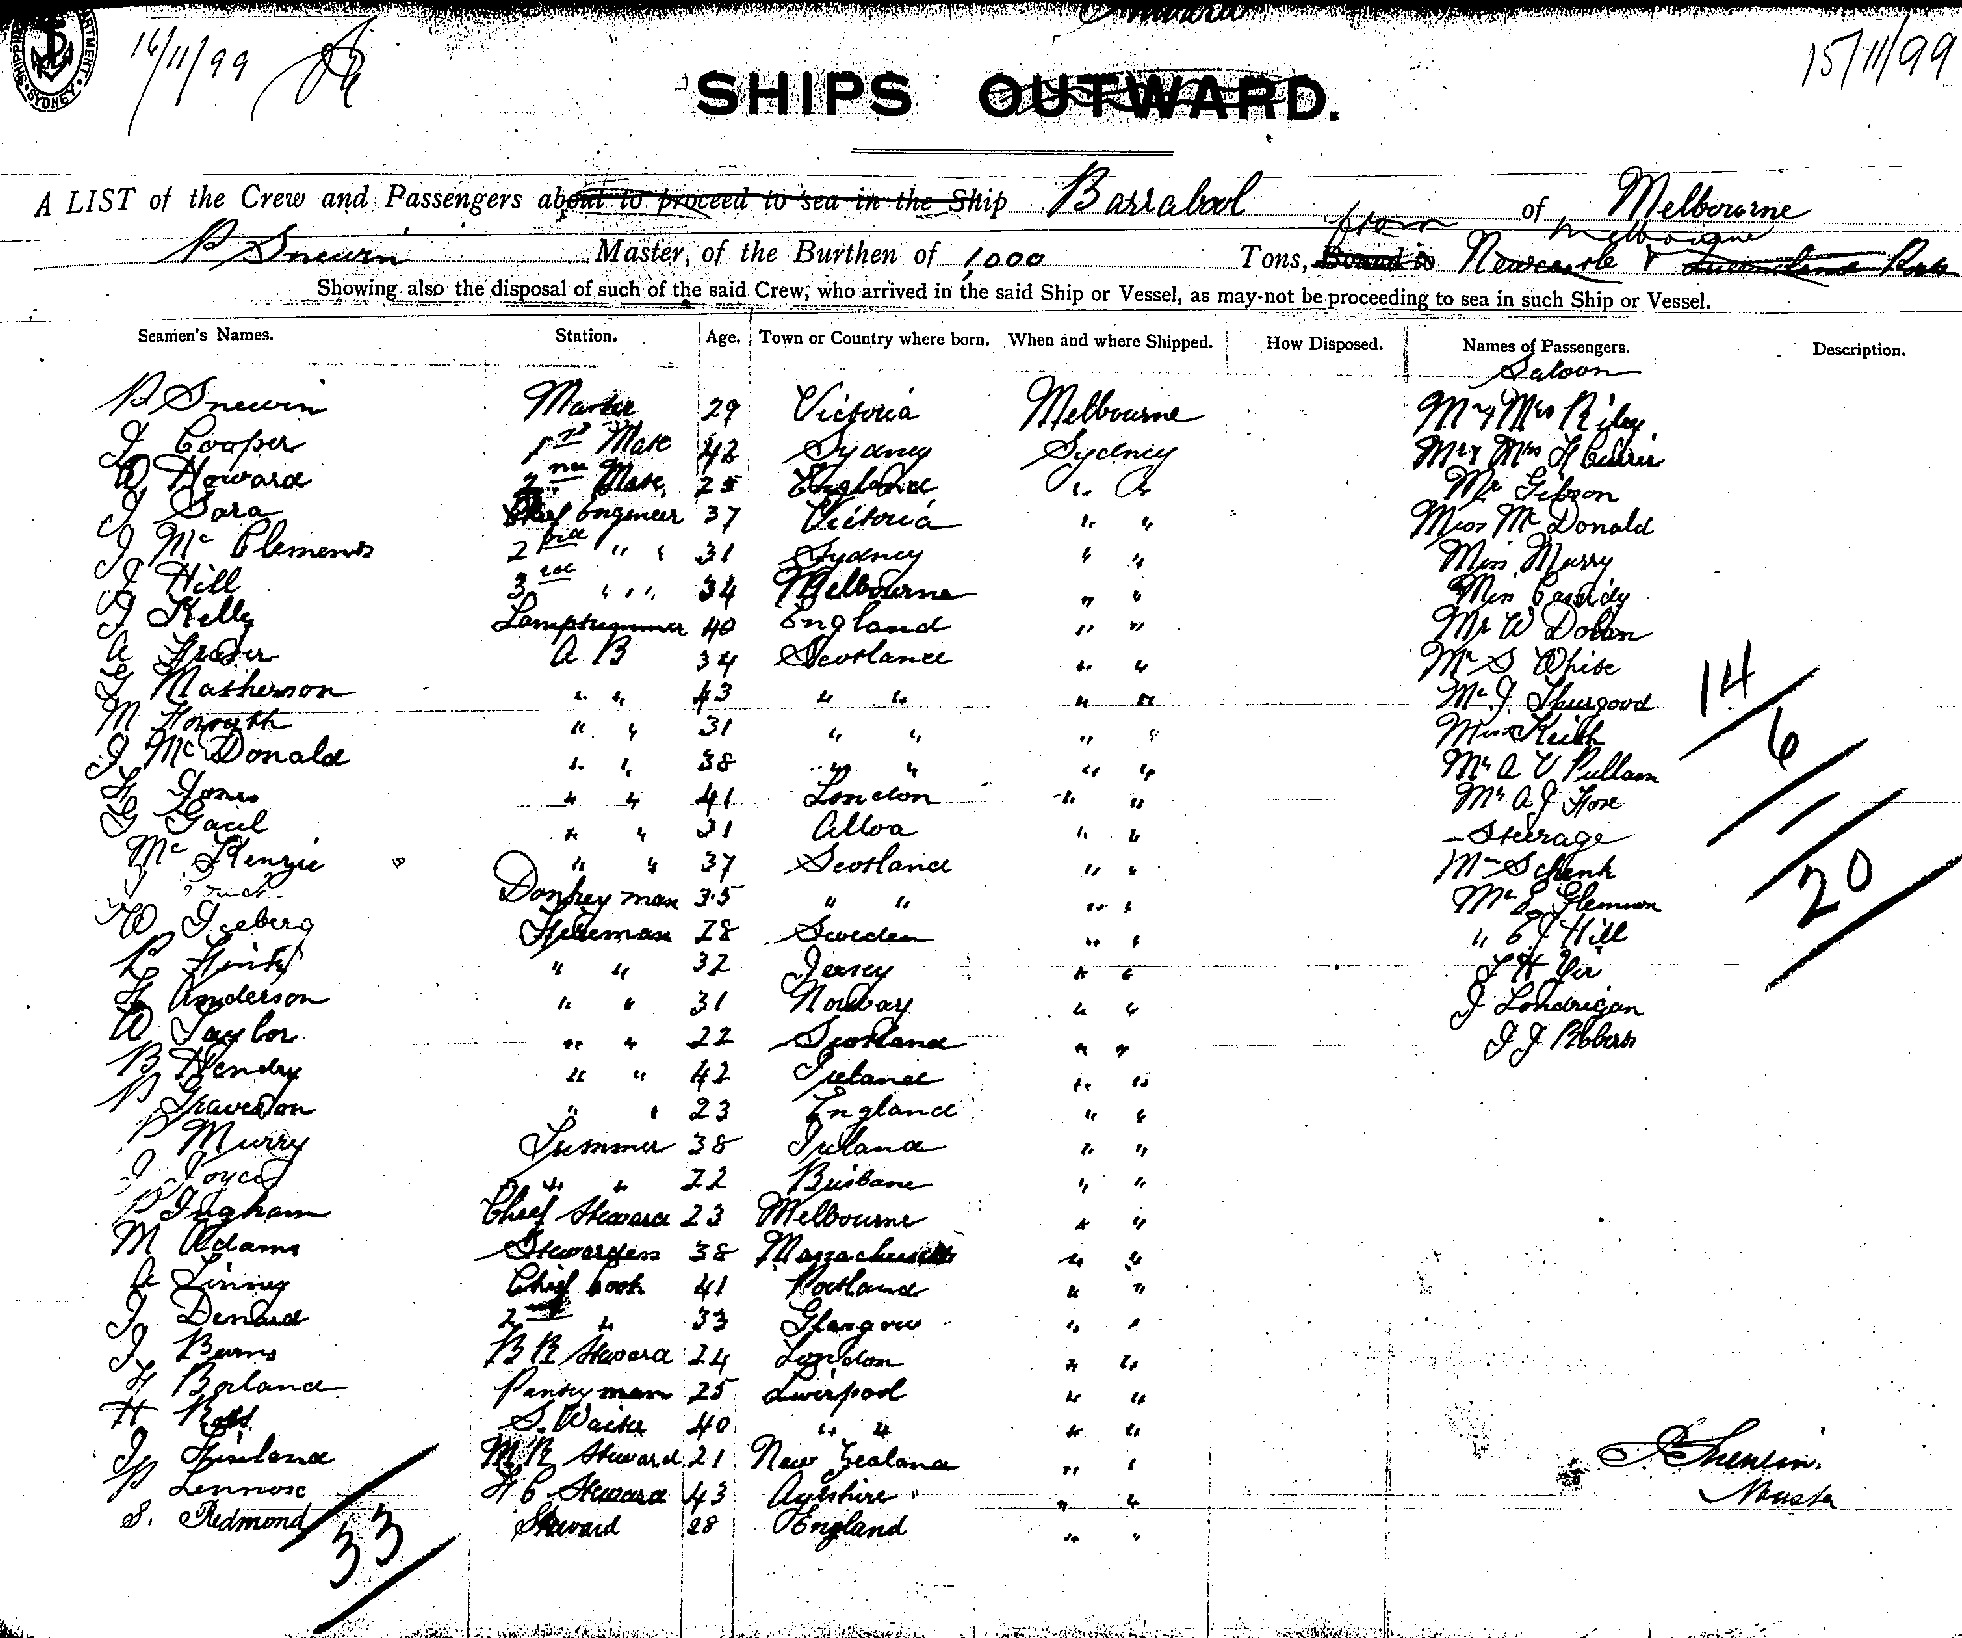 SYDNEY
16/11/99
15/11/99
SHIPS OUTWARD.
A LIST of the Crew and Passengers about to proceed to sea in the Ship Barrabool of Melbourne
from Melbourne
P Snewin Master, of the Burthen of 1,000 Tons, Bound to Newcastle & Queensland Ports
Showing also the disposal of such of the said Crew, who arrived in the said Ship or Vessel, as may not be proceeding to sea in such Ship or Vessel.
Seamen's Names. Station. Age. Town or Country where born. When and where Shipped. How Disposed. Names of Passengers. Description.
Saloon
P Snewin Master 29 Victoria Melbourne Mr & Mrs Riley
J Cooper 1st Mate 42 Sydney Sydney Mr & Mrs H
W Howard 2nd Mate 25 England " " Mr Gibson
J Sara Chief Engineer 37 Victoria " " Miss McDonald
J McClements 2nd " " 31 Sydney " " Miss Murry
J Hill 3rd " " 34 Melbourne " " Miss Cassidy
J Kelly Lamptrimmer 40 England " " Mr W Dolan
A Fraser A B 34 Scotland " " Mr S White
Matherson " " 43 " " " " Mr J Thurgood
M Forsyth " " 31 " " " " Miss Keith
J McDonald " " 38 " " " " Mr A V Pullam
H Jones " " 41 London " " Mr A J Hore
G Gaul " " 31 Alloa " " Steerage
McKenzie " " 37 Scotland " " Mr Schenk
Donkeyman 35 " " " " Mr E Glennon
W Iceberg Fireman 28 Sweden " " " E J Hill
" " 32 Jersey " " J H
H Anderson " " 31 Norway " " J Londrigan
W Taylor " " 22 Scotland " " J J Roberts
B Hendry " " 42 Ireland " "
P Graveston " " 23 England " "
P Murry Trimmer 38 Ireland " "
J Joyce " " 22 Brisbane " "
P Ingham Chief Steward 23 Melbourne " "
M Adams Stewardess 38 Massachusetts " "
A Linney Chief Cook 41 Portland " "
J Denard 2nd " 33 Glasgow " "
J Burns B R Steward 24 London " "
H Borland Pantryman 25 Liverpool " "
H Ross S. Waiter 40 " " " "
J Finland M R Steward 21 New Zealand " "
P Lennox F C Steward 43 Ayrshire " "
S. Redmond Steward 28 England " "
14
6
20
33
P Snewin.
Master